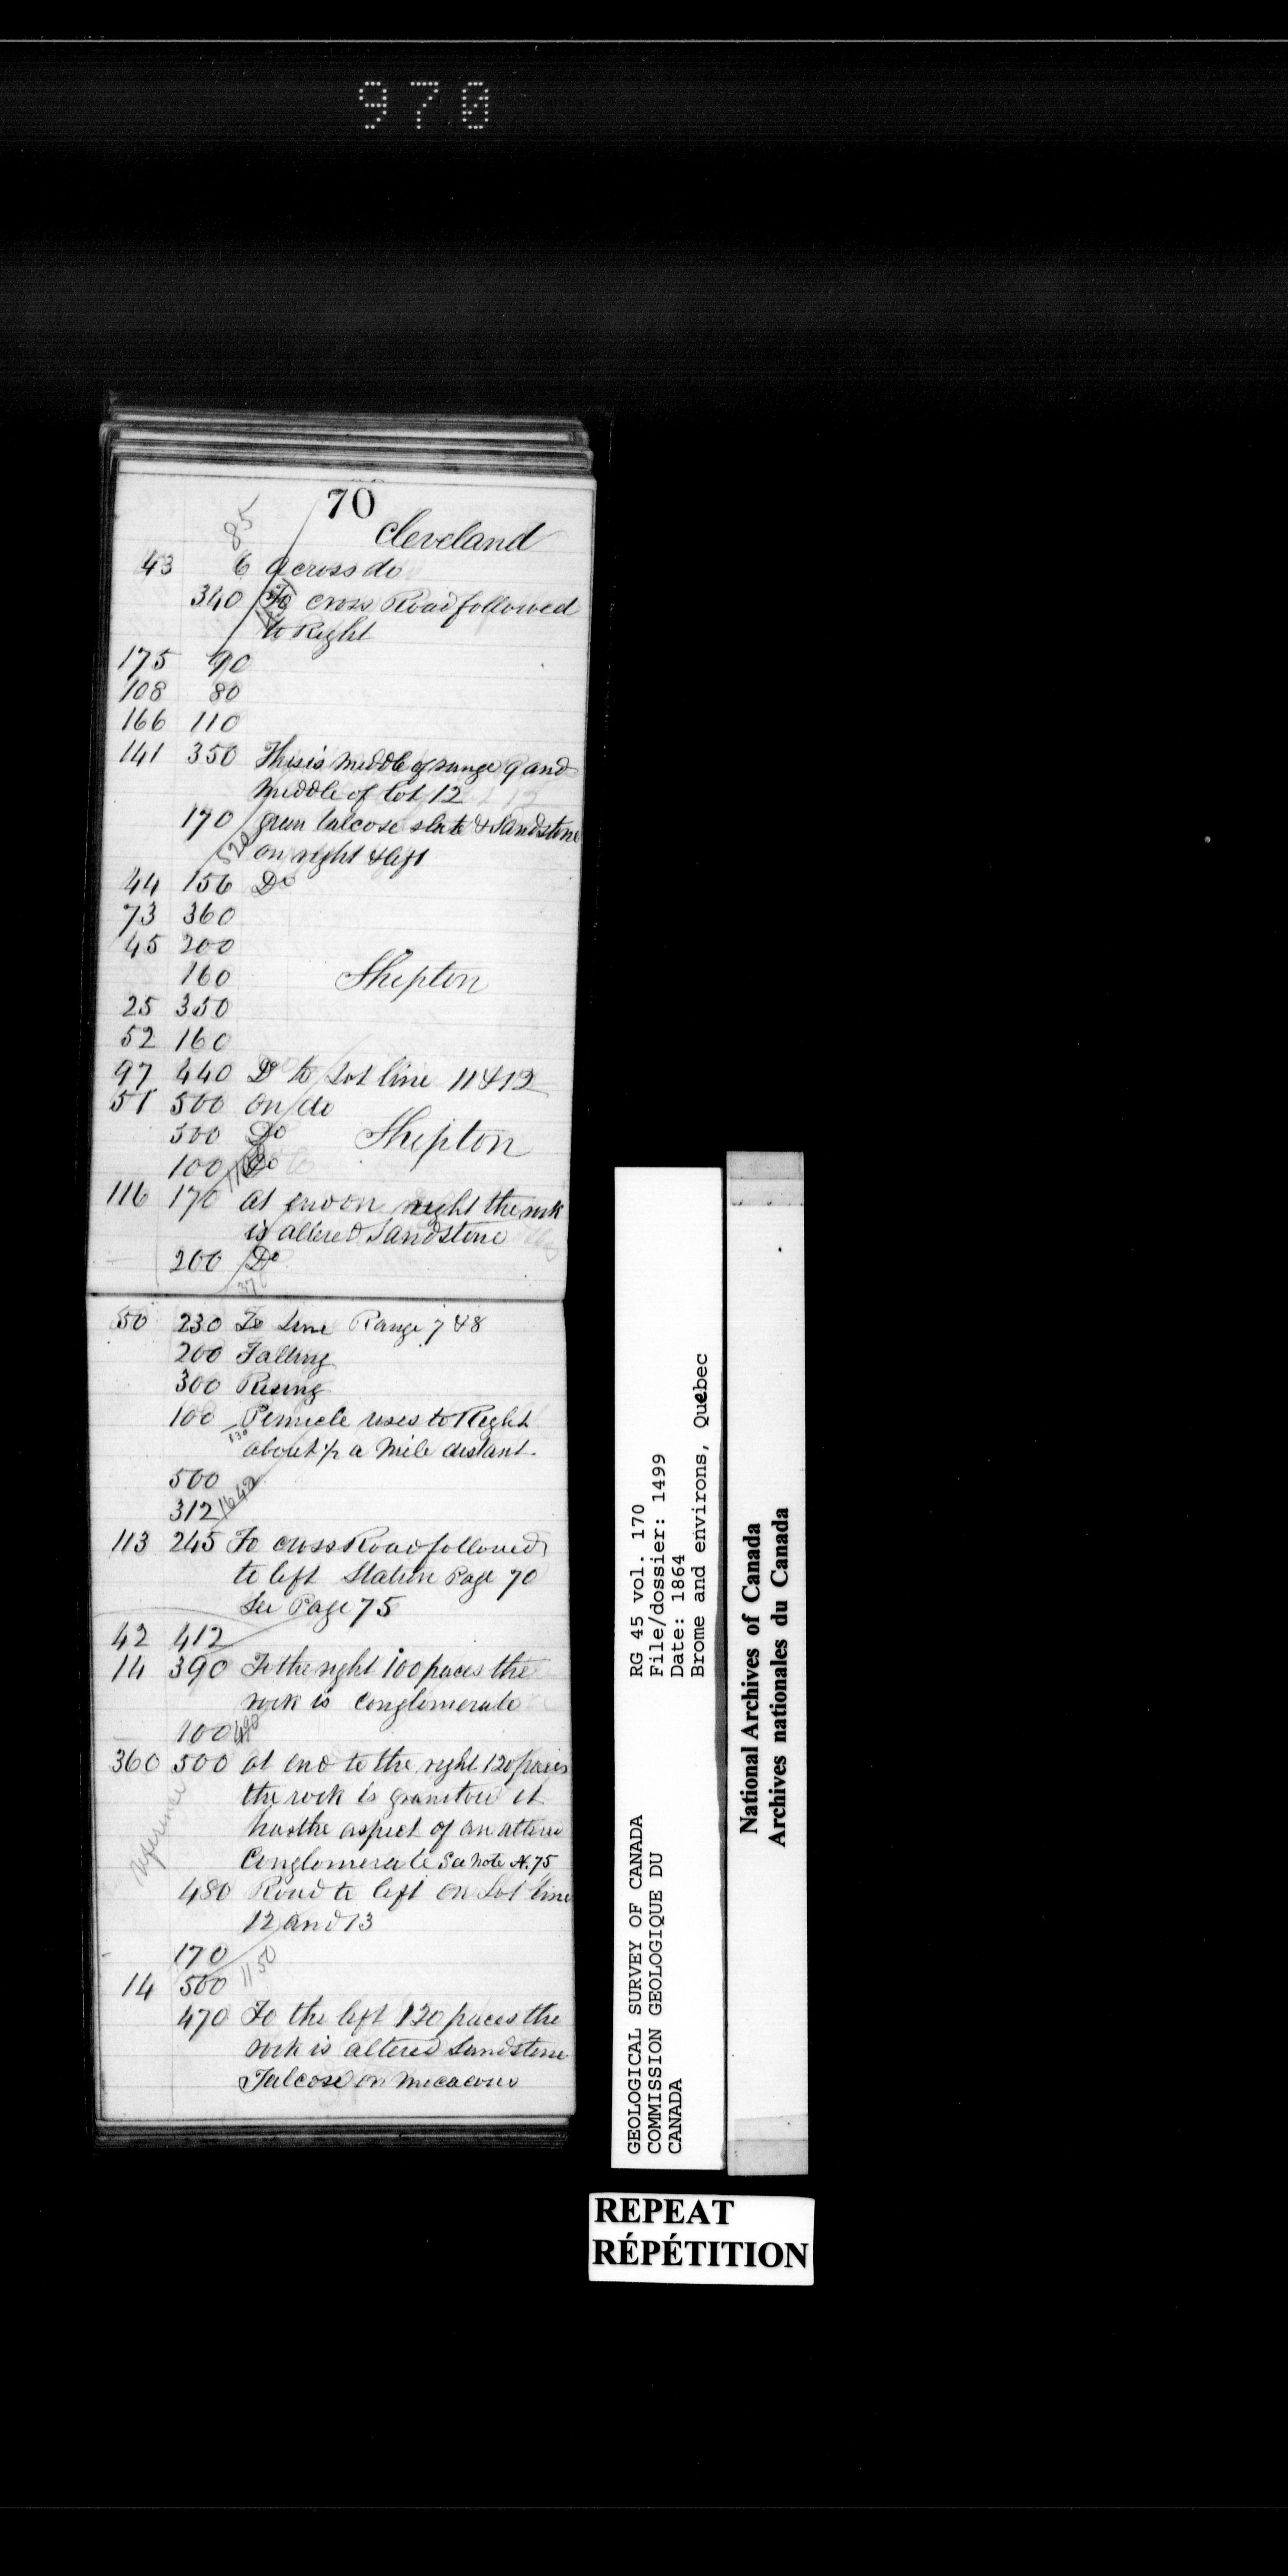 970
70
85
Cleveland
43 6 across do
340 To cross Road followed
to Right
175 90
108 80
166 110
141 350 This is middle of range 9 and
middle of Lot 12
170 green talcose slate & Sandstone
520 on right & left
44 156 Do
73 360
45 200
160 Shipton
25 350
52 160
97 440 Do to Lot line 11 & 12
51 500 on do
500 Do Shipton
100 Do
116 170 at end on right the rock
is altered Sandstone
200 Do
50 230 To Line Range 7 & 8
200 Falling
300 Rising
100 Pinnicle rises to Right
130 about ½ a mile distant.
500
312 1642
113 245 To cross Road followed
to left Station Page 70
See Page 75
42 412
14 390 To the right 100 paces the
rock is Conglomerate
100 490
360 500 at end to the right 120 paces
the rock is it
has the aspect of an altered
Conglomerate See Note N. 75
reference
480 Road to left on Lot line
12 and 13
170
1150
14 500
470 To the left 120 paces the
rock is altered Sandstone
Talcose or micaceous
GEOLOGICAL SURVEY OF CANADA
COMMISSION GEOLOGIQUE DU
CANADA
RG 45 vol. 170
File/dossier: 1499
Date: 1864
Brome and environs, Quebec
National Archives of Canada
Archives nationales du Canada
REPEAT
RÉPÉTITION